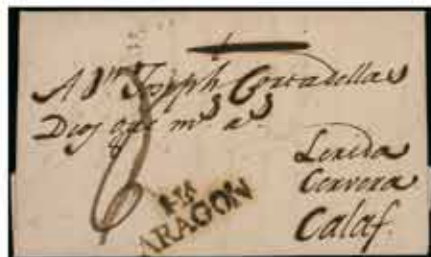 A Dn Joseph Cortadellas
Dios gde ms as
Lerida
Cervera
Calaf.
6
ARAGON